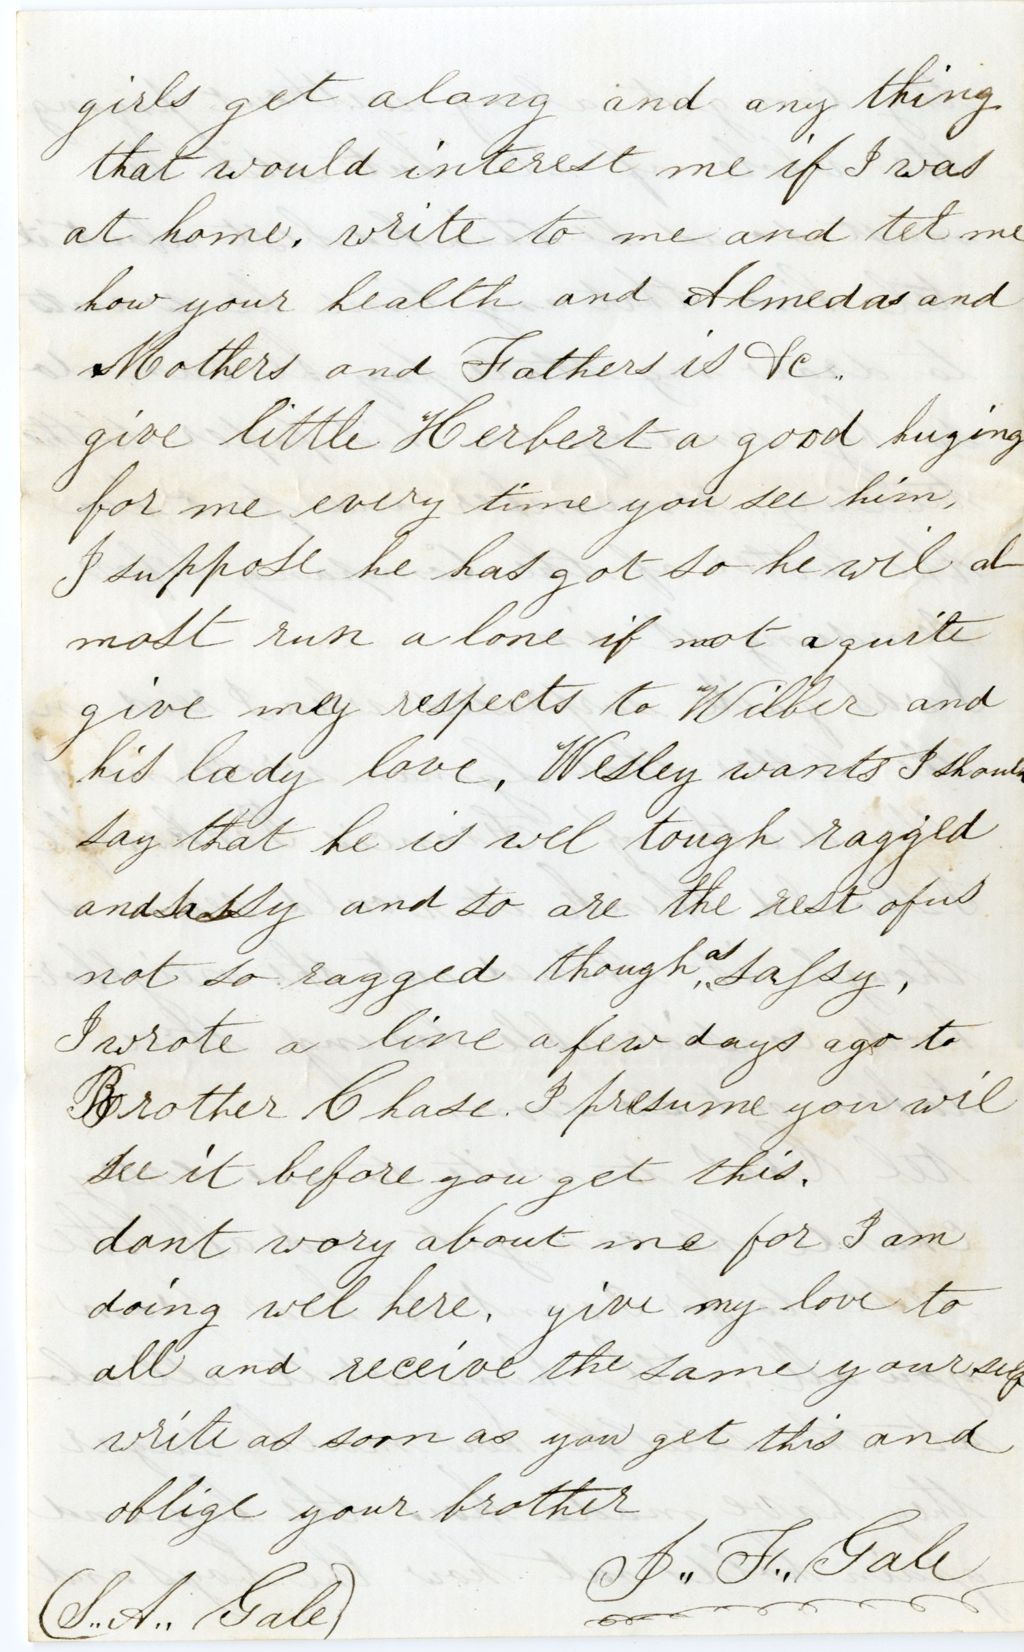 girls get along and any thing
that would interest me if I was
at home. write to me and tel me
how your health and Almedas and
Mothers and Fathers is &c.
give little Herbert a good huging
for me every time you see him,
I suppose he has got so he wil al-
most run alone if not quite
give my respects to Wilber and
his lady love, Wesley wants I should
say that he is wel tough ragged
and sassy and so are the rest of us
not so ragged though, as sassy,
I wrote a line a few days ago to
Brother Chase. I presume you wil
see it before you get this.
dont wory about me for I am
doing wel here. give my love to
all and receive the same yourself
write as soon as you get this and
oblige your brother
F,, Gale
(S,, A,, Gale)